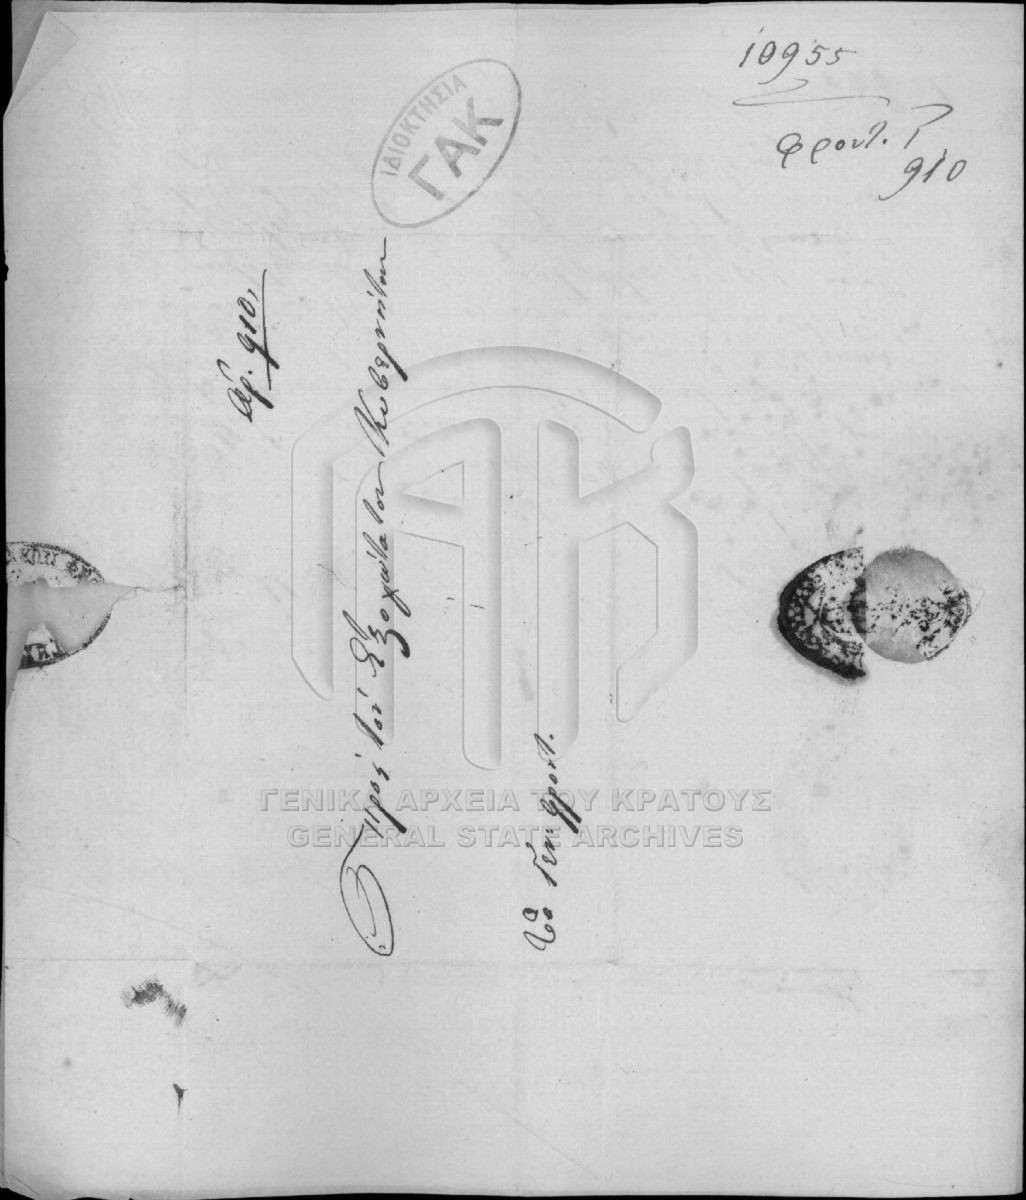 10955
φροντ. Γ
910
ΙΔΙΟΚΤΗΣΙΑ
ΓΑΚ
Ἀρ. 910,
Πρὸς τὸν Ἐξοχώτατον Κυβερνήτην
Τὸ Γεν. φροντ.
ΓΕΝΙΚΑ ΑΡΧΕΙΑ ΤΟΥ ΚΡΑΤΟΥΣ
GENERAL STATE ARCHIVES